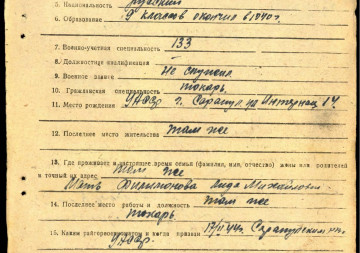 5. Национальность русский
6. Образование 9 классов окончил в 1940 г.
7. Военно-учетная специальность 133
8. Должностная квалификация
9. Военное звание Не служил
10. Гражданская специальность токарь.
11. Место рождения УАССР г. Сарапул
12. Последнее место жительства там же
13. Где проживает в настоящее время семья (фамилия, имя, отчество) жены или родителей
и точный их адрес там же
Мать Филимонова Михайловна
14. Последнее место работы и должность там же
токарь.
15. Каким райгорвоенкоматом и когда призван Сарапульским
УАССР.